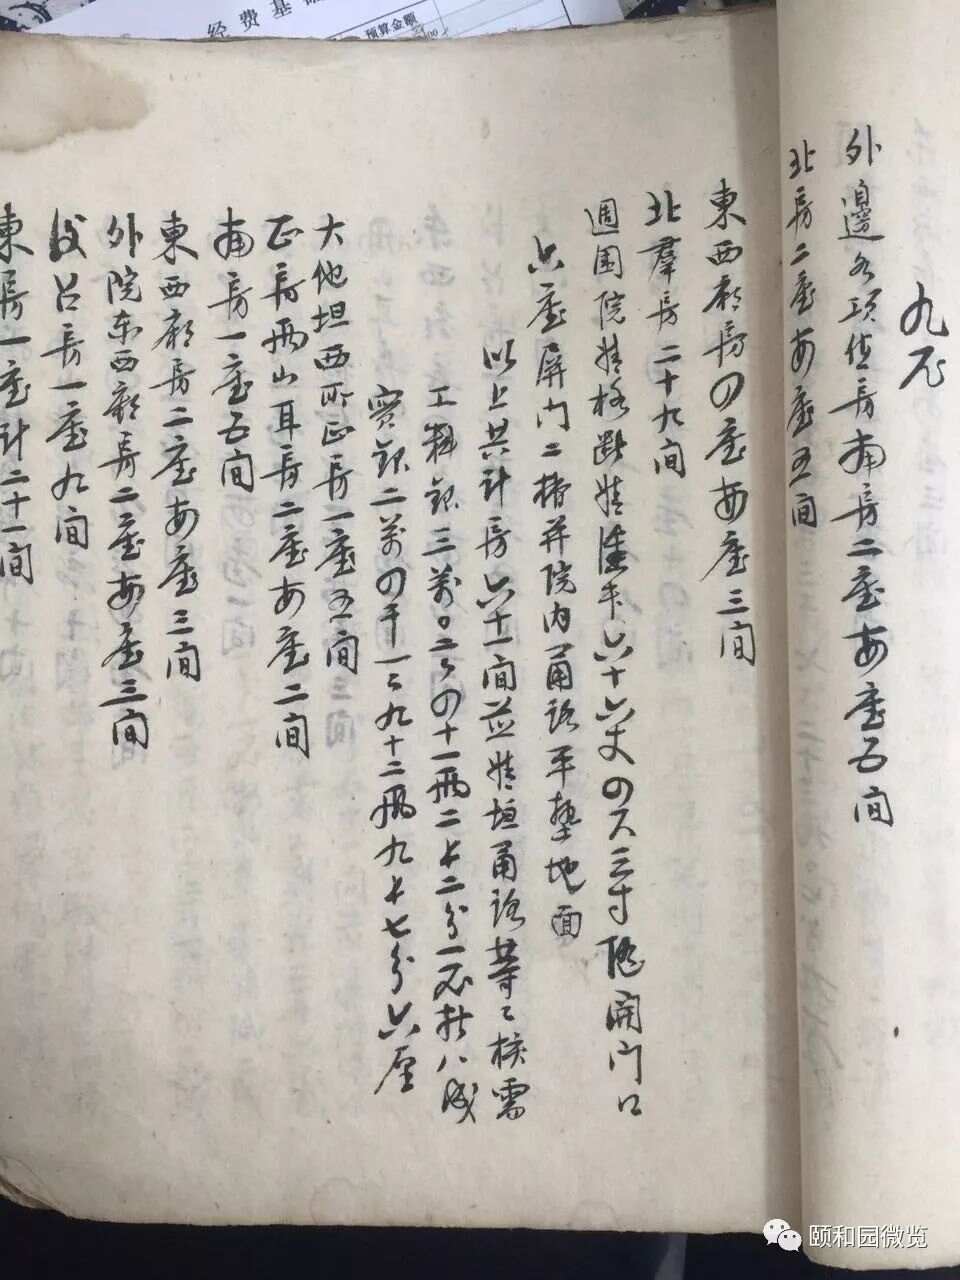 經费基
预算金额
九厘
外邊各項值房南房二座每座五間
北房二座每座五間
東西廂房四座每座三間
北羣房二十九間
週圍院墻格斷墻湊長六十六丈四尺三寸隨開門口
六座屏門二槽并院内甬路平墊地面
以上共計房六十一間並墻垣甬路等工核需
工料銀三萬〇二百四十一両二錢二分一厘按八成
實銀二萬四千一百九十二両九錢七分六厘
大他坦西所正房一座五間
正房両山耳房二座每座二間
南房一座五間
東西廂房二座每座三間
外院东西廂房二座每座三間
後召房一座九間
東房一座計二十一間
颐和园微览